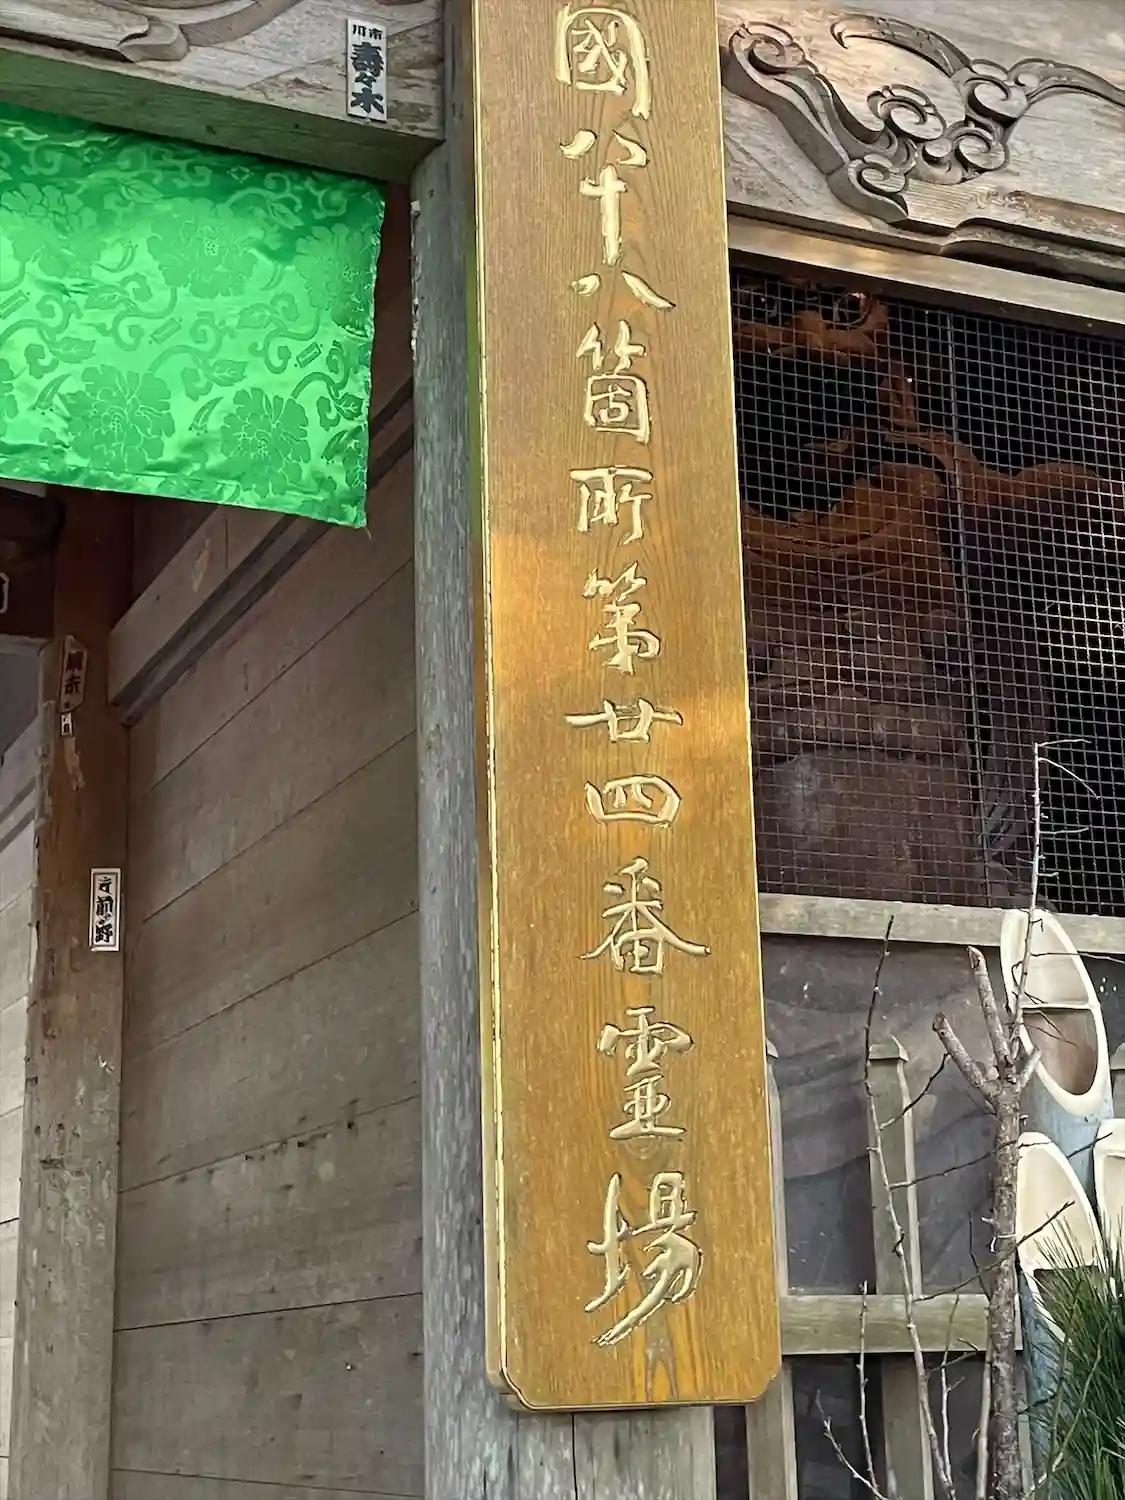 國八十八箇所第廿四番靈場
市川
壽々木
前野